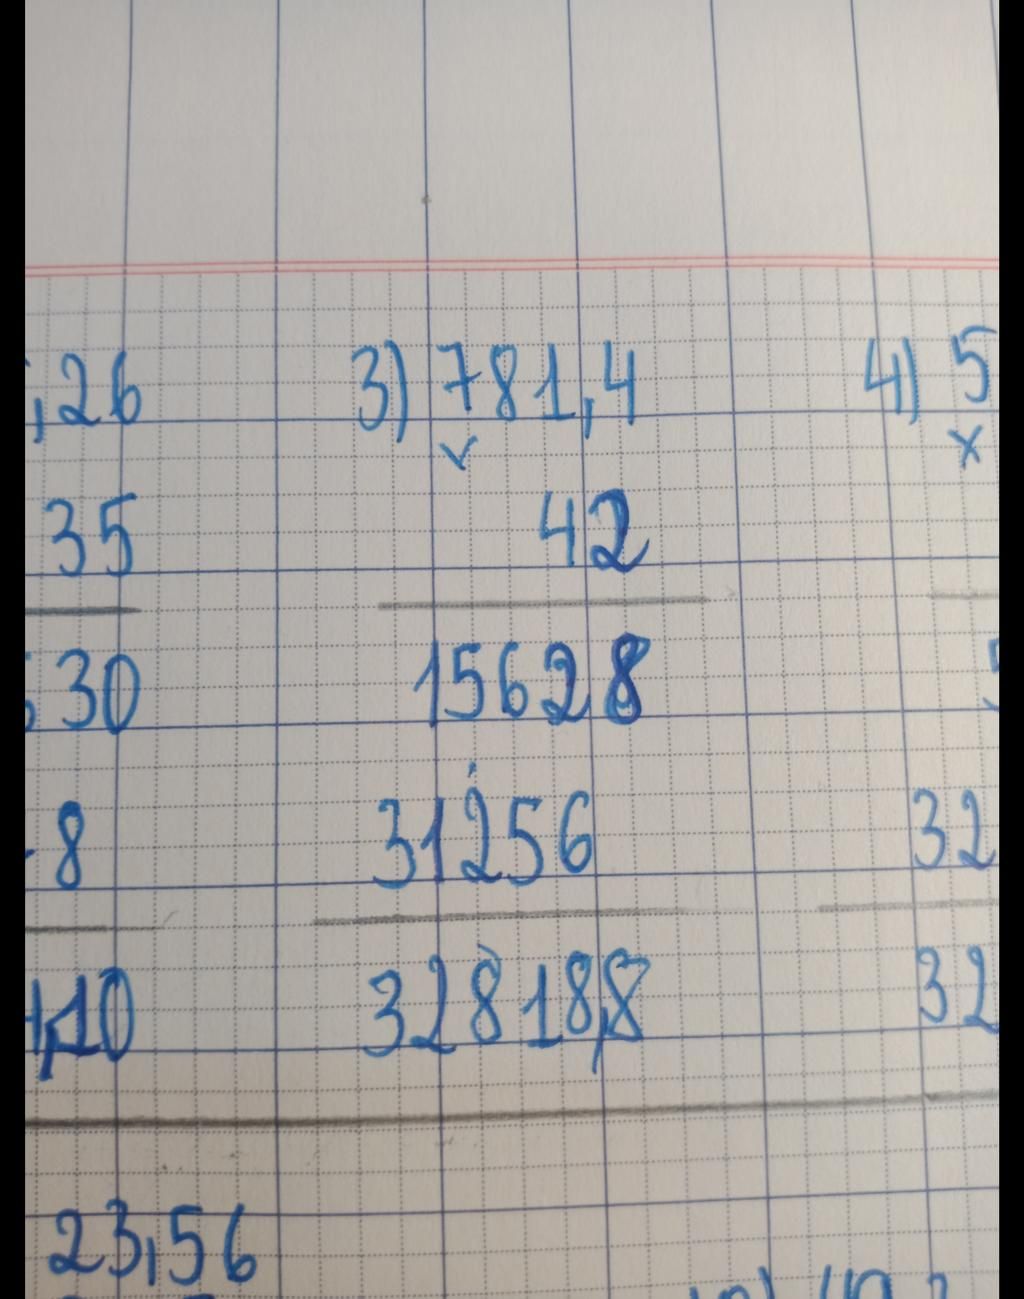 ,26 3) 781,4 4) 5
x x
35 42
30 15628
8 31256 32
,10 32818,8 32
23,56